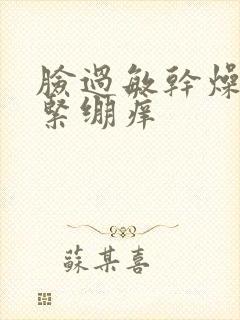 臉過敏幹燥
緊繃痒
蘇某喜